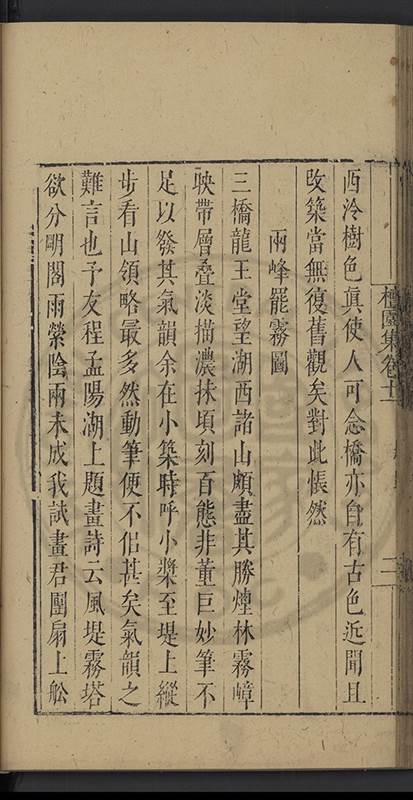 檀園集卷十一
西泠樹色真使人可念橋亦自有古色近聞且
改築當無復舊觀矣對此悵然
兩峰罷霧圖
三橋龍王堂望湖西諸山頗盡其勝煙林霧嶂
映帶層疊淡描濃抹頃刻百態非董巨妙筆不
足以發其氣韻余在小築時呼小槳至堤上縱
步看山領略最多然動筆便不佀甚矣氣韻之
難言也予友程孟陽湖上題畫詩云風堤霧塔
欲分明閣雨縈陰兩未成我試畫君團扇上舩